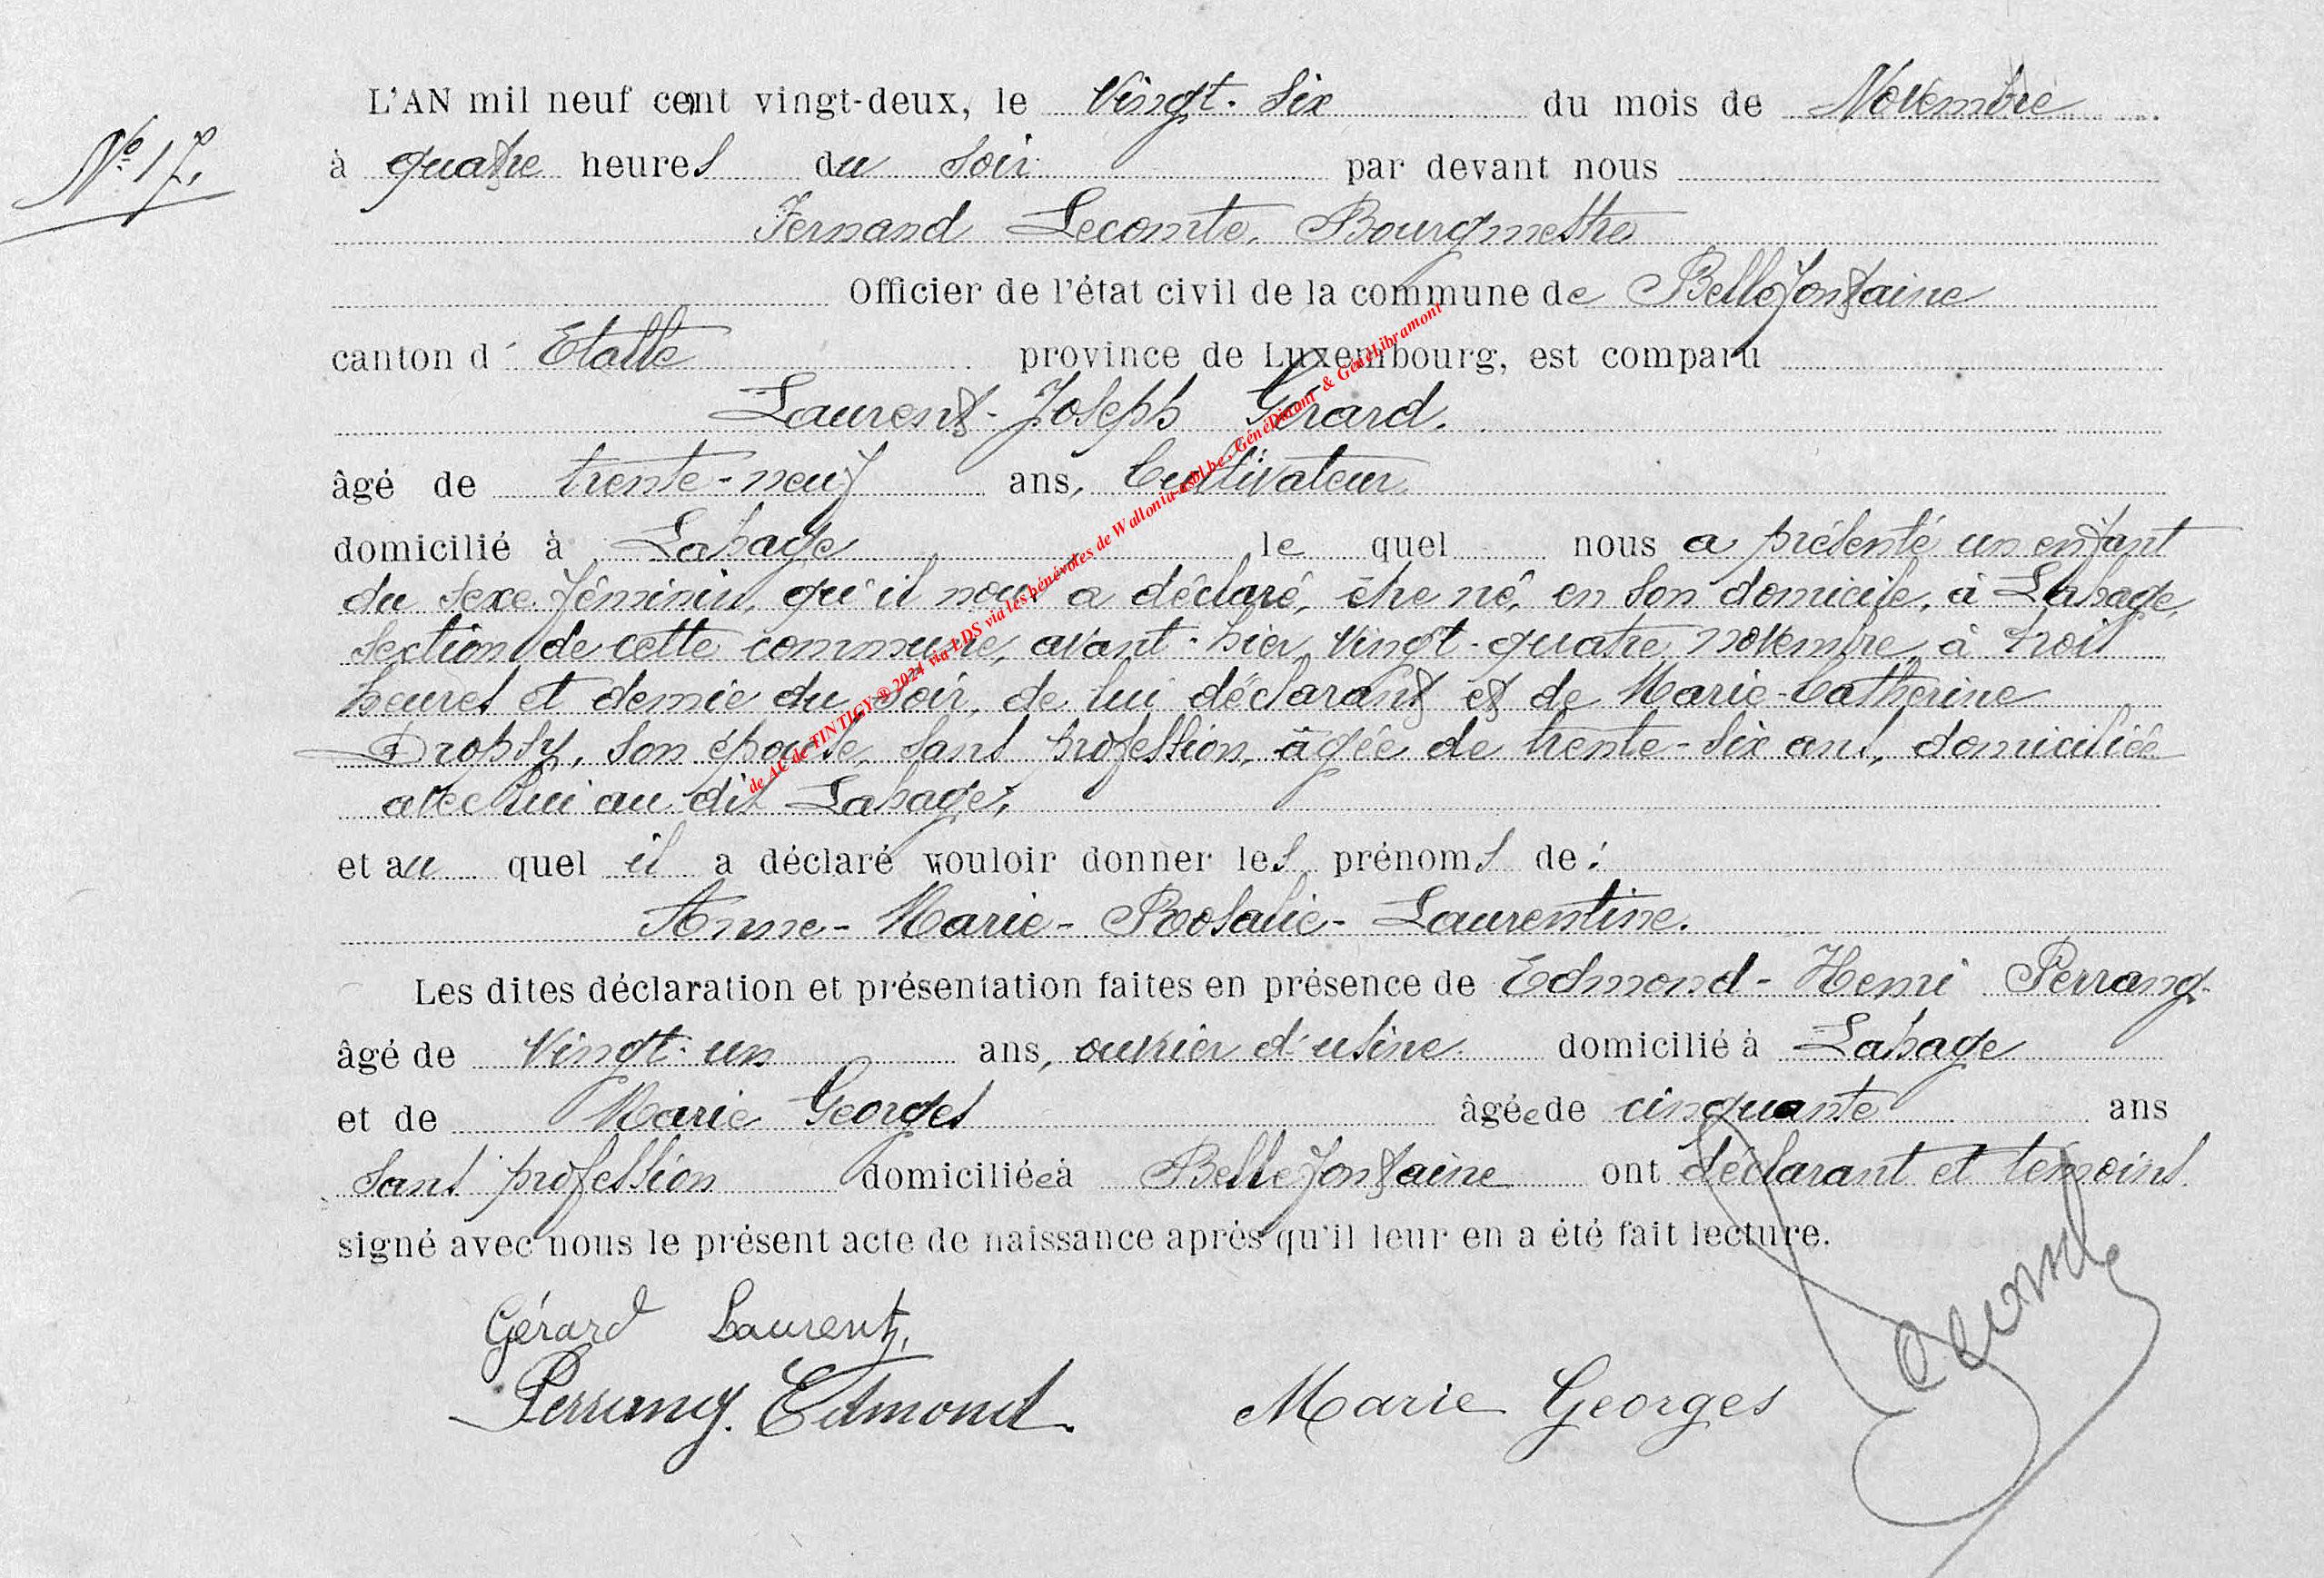 N° 17.
L'AN mil neuf cent vingt-deux, le Vingt-six du mois de Novembre
à quatre heures du soir par devant nous
Fernand Lecomte, Bourgmestre
Officier de l'état civil de la commune de Bellefontaine
canton d'Etalle province de Luxembourg, est comparu
Laurent-Joseph Gérard.
âgé de trente-neuf ans, Cultivateur
domicilié à Lahage le quel nous a présenté un enfant
du sexe féminin, qu'il nous a déclaré, être né, en son domicile, à Lahage,
section de cette commune, avant-hier vingt-quatre novembre, à trois
heures et demie du soir, de lui déclarant et de Marie-Catherine
Dropsy, son épouse, sans profession, âgée de trente-six ans, domiciliée
avec lui au dit Lahage,
et au quel il a déclaré vouloir donner les prénoms de :
Anne-Marie-Rosalie-Laurentine.
Les dites déclaration et présentation faites en présence de Edmond-Henri Perrang
âgé de Vingt-un ans, ouvrier d'usine domicilié à Lahage
et de Marie Georges âgée de cinquante ans
sans profession domiciliée à Bellefontaine ont déclarant et témoins
signé avec nous le présent acte de naissance après qu'il leur en a été fait lecture.
Gérard Laurent,
Perrang. Edmond.
Marie Georges
Lecomte
de AC de TINTIGY @ 2024 via LDS via les bénévoles de Wallonia-asbl.be, GénéDinant & GénéLibramont